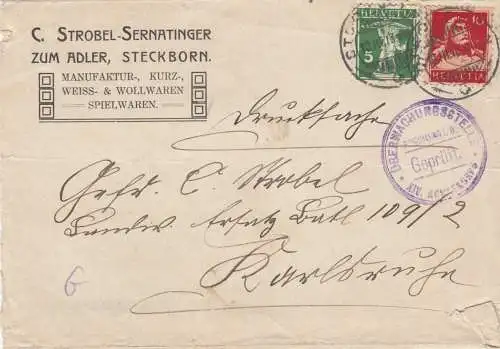 C. STROBEL-SERNATINGER
ZUM ADLER, STECKBORN.
MANUFAKTUR-, KURZ-,
WEISS- & WOLLWAREN
SPIELWAREN.
HELVETIA
5
10
HELVETIA
Drucksache
ÜBERWACHUNGSSTELLE
Geprüft.
XIV.
Gefr. C. Strobel
Landw. Ersatz Batl 109/2
Karlsruhe
G